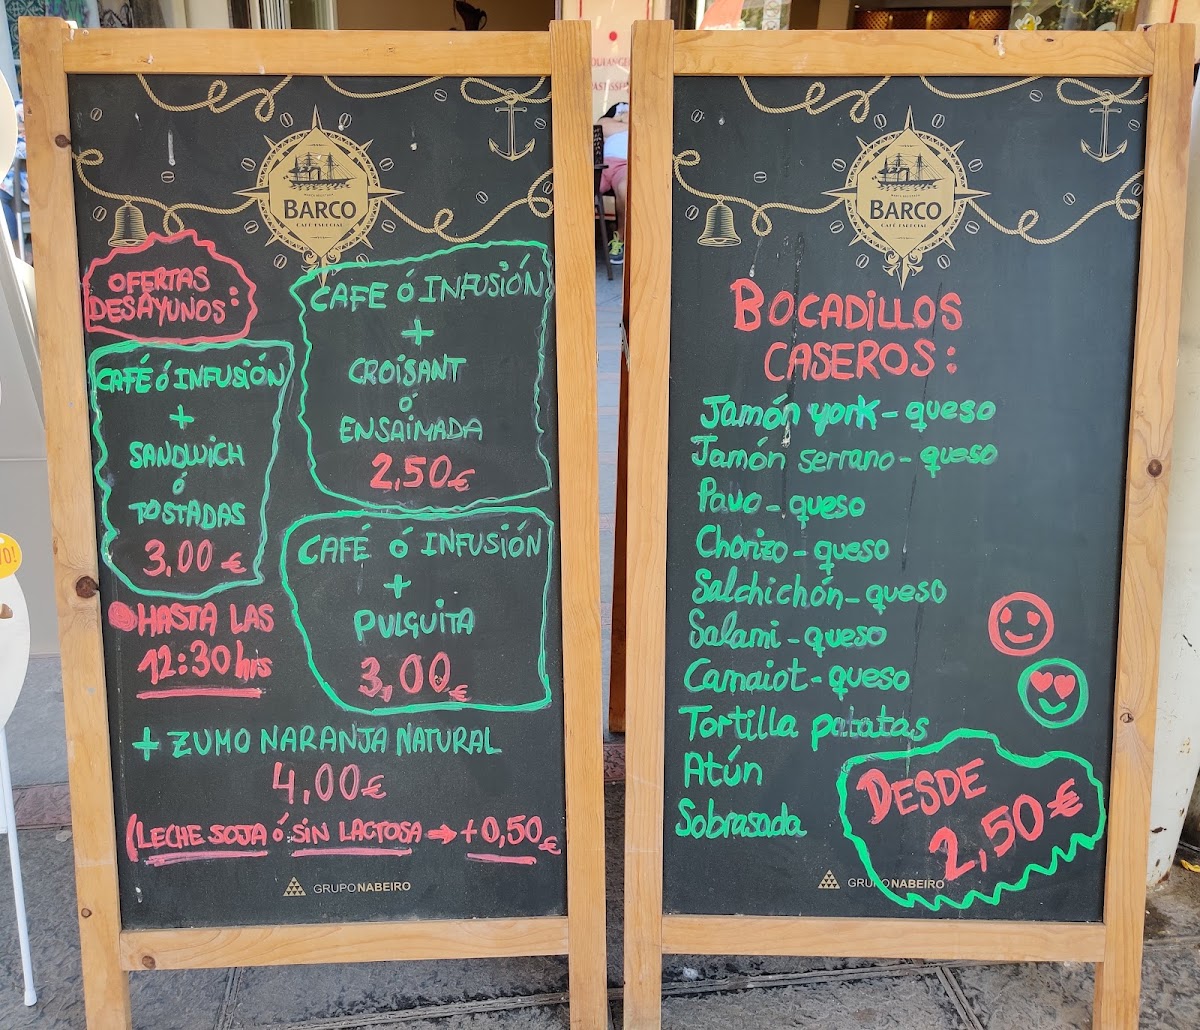 BARCO
CAFÉ ESPECIAL
OFERTAS
DESAYUNOS:
CAFÉ ó INFUSIÓN
+
SANDWICH
ó
TOSTADAS
3,00 €
HASTA LAS
12:30 hrs
CAFE ó INFUSIÓN
+
CROISANT
ó
ENSAIMADA
2,50€
CAFÉ ó INFUSIÓN
+
PULGUITA
3,00€
+ ZUMO NARANJA NATURAL
4,00€
(LECHE SOJA ó SIN LACTOSA → +0,50€
GRUPO NABEIRO
BARCO
CAFÉ ESPECIAL
BOCADiLLOS
CASEROS:
Jamón york - queso
Jamón serrano - queso
Pavo - queso
Chorizo - queso
Salchichón - queso
Salami - queso
Camaiot - queso
Tortilla patatas
Atún
Sobrasada
DESDE
2,50€
GRUPO NABEIRO